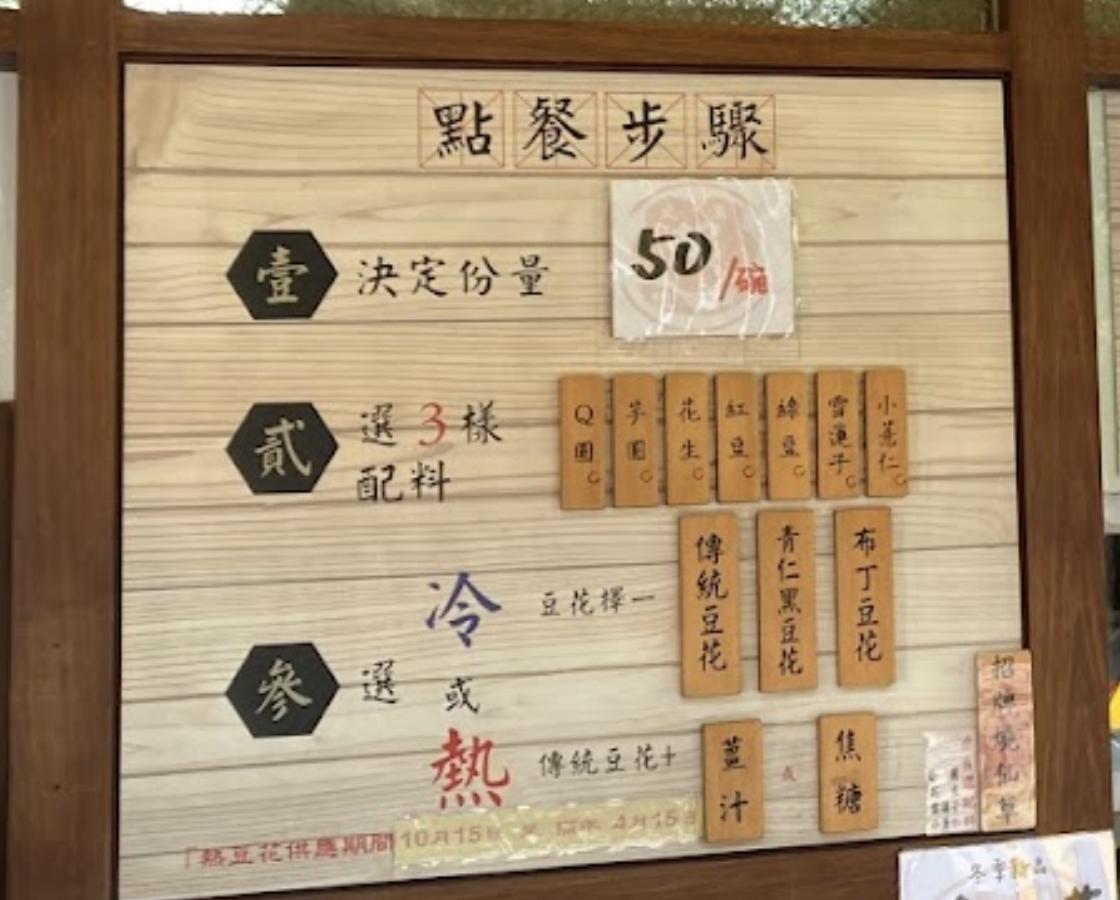 點餐步驟
壹 決定份量 50/碗
貳 選3樣配料
Q圓
芋圓
花生
紅豆
綠豆
雪蓮子
小薏仁
參 選 冷 或 熱
豆花擇一
傳統豆花
青仁黑豆花
布丁豆花
傳統豆花+
薑汁
或
焦糖
「熱豆花供應期間 10月15日 至 隔年 4月15日
招牌燒仙草
冬季新品